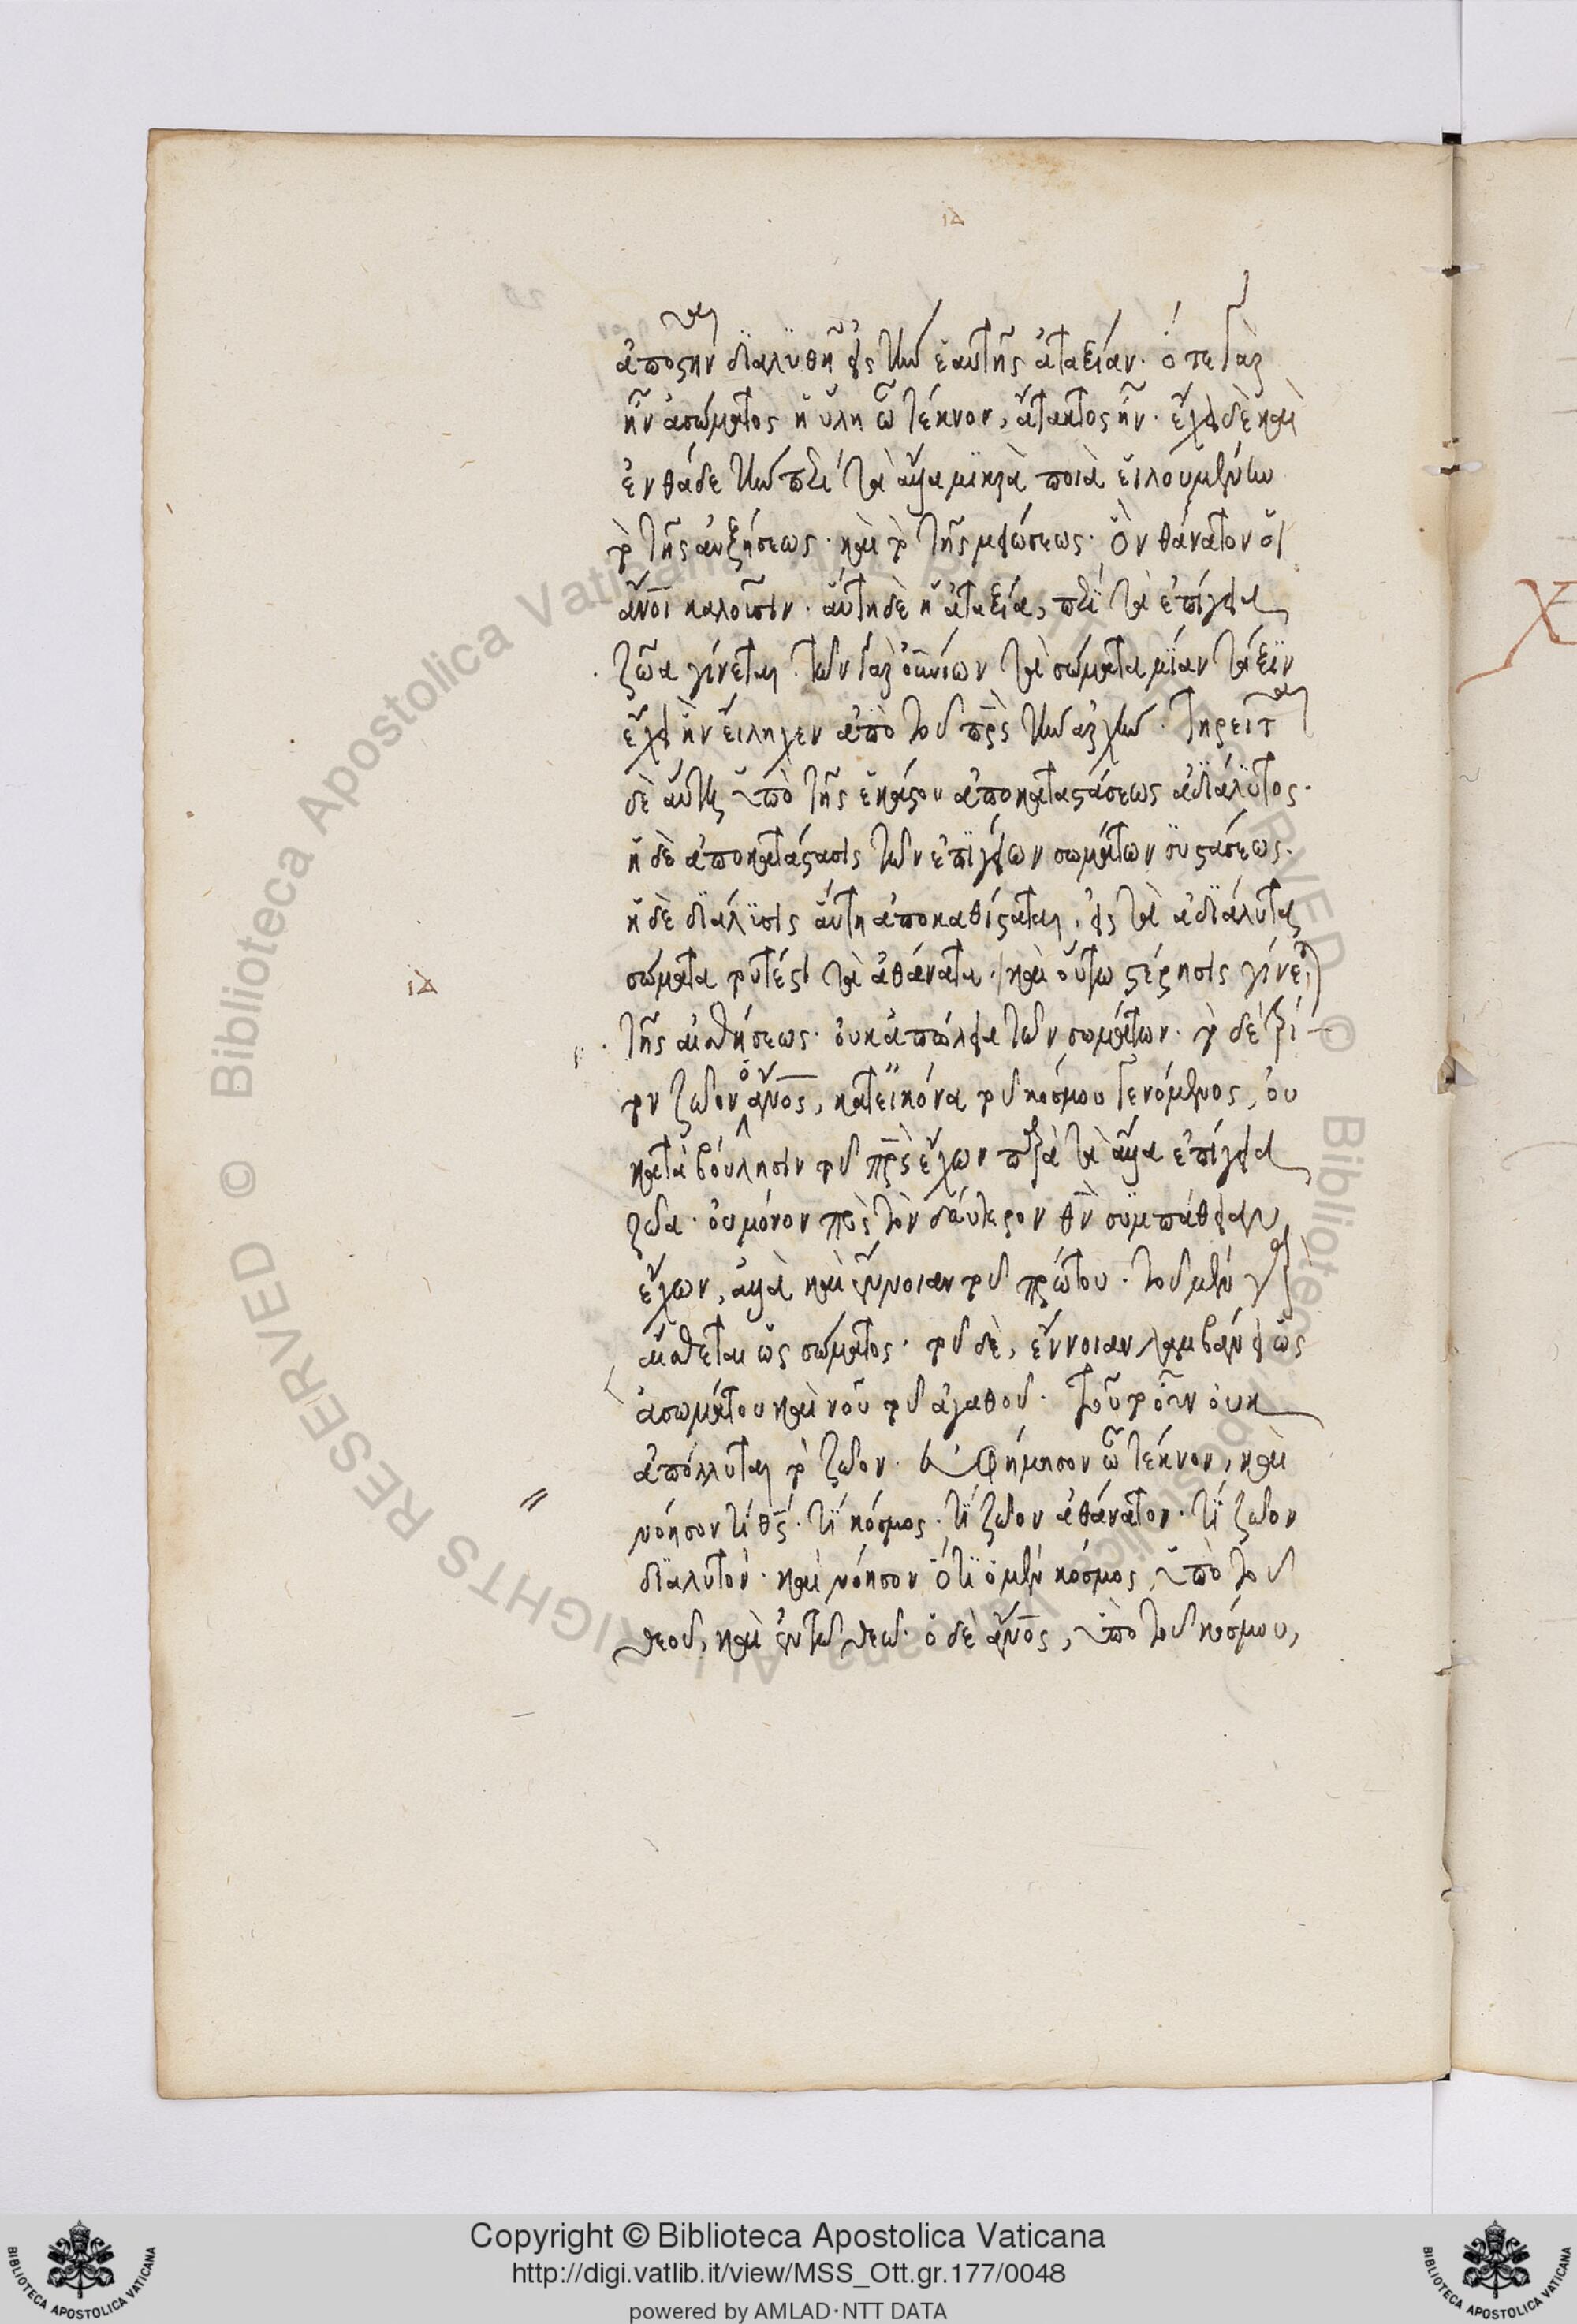 ιδ
ἀποστῆναι διαλυθῆ εἰς τὴν ἑαυτῆς ἀταξίαν. ὅτε γὰρ
ἦν ἀσώματος ἡ ὕλη ὦ τέκνον, ἄτακτος ἦν. ἔχει δὲ καὶ
ἐνθάδε τὴν περὶ τὰ ἄλλα μικρὰ ποιὰ εἱλουμένην
τὸ τῆς αὐξήσεως. καὶ τὸ τῆς μειώσεως. ὃν θάνατον οἱ
ἄνοι καλοῦσιν. αὕτη δὲ ἡ ἀταξία, περὶ τὰ ἐπίγεια
ζῶα γίνεται. τῶν γὰρ οὐνίων τὰ σώματα μίαν τάξιν
ἔχει ἣν εἴληχεν ἀπὸ τοῦ πρς τὴν ἀρχήν. τηρεῖται
δὲ αὕτη ὑπὸ τῆς ἑκάστου ἀποκαταστάσεως ἀδιάλυτος.
ἡ δὲ ἀποκατάστασις τῶν ἐπιγείων σωμάτων συστάσεως.
ἡ δὲ διάλυσις αὕτη ἀποκαθίσταται, εἰς τὰ ἀδιάλυτα
σώματα τουτέστι τὰ ἀθάνατα. καὶ οὕτω στέρησις γίνεται
ιδ
τῆς αἰσθήσεως. οὐκ ἀπώλεια τῶν σωμάτων. τὸ δὲ τρί
τον ζῶον ὁ ἄνος, κατ' εἰκόνα τοῦ κόσμου γενόμενος, οὐ
κατὰ βούλησιν τοῦ πρς ἔχων παρὰ τὰ ἄλλα ἐπίγεια
ζῶα. οὐ μόνον πρὸς τὸν δεύτερον θν συμπάθειαν
ἔχων, ἀλλὰ καὶ ἔννοιαν τοῦ πρώτου. τοῦ μὲν γὰρ
αἴσθεται ὡς σώματος. τοῦ δὲ, ἔννοιαν λαμβάνει ὡς
ἀσωμάτου καὶ νοῦ τοῦ ἀγαθοῦ. τοῦτο οὖν οὐκ
ἀπόλλυται τὸ ζῶον. εὐφήμησον ὦ τέκνον, καὶ
νόησον τί θς. τί κόσμος. τί ζῶον ἀθάνατον. τί ζῶον
διαλυτὸν. καὶ νόησον ὅτι ὁ μὲν κόσμος, ὑπὸ τοῦ
θεοῦ, καὶ ἐν τῶ θεῶ. ὁ δὲ ἄνος, ὑπὸ τοῦ κόσμου,
Copyright © Biblioteca Apostolica Vaticana
http://digi.vatlib.it/view/MSS_Ott.gr.177/0048
powered by AMLAD·NTT DATA